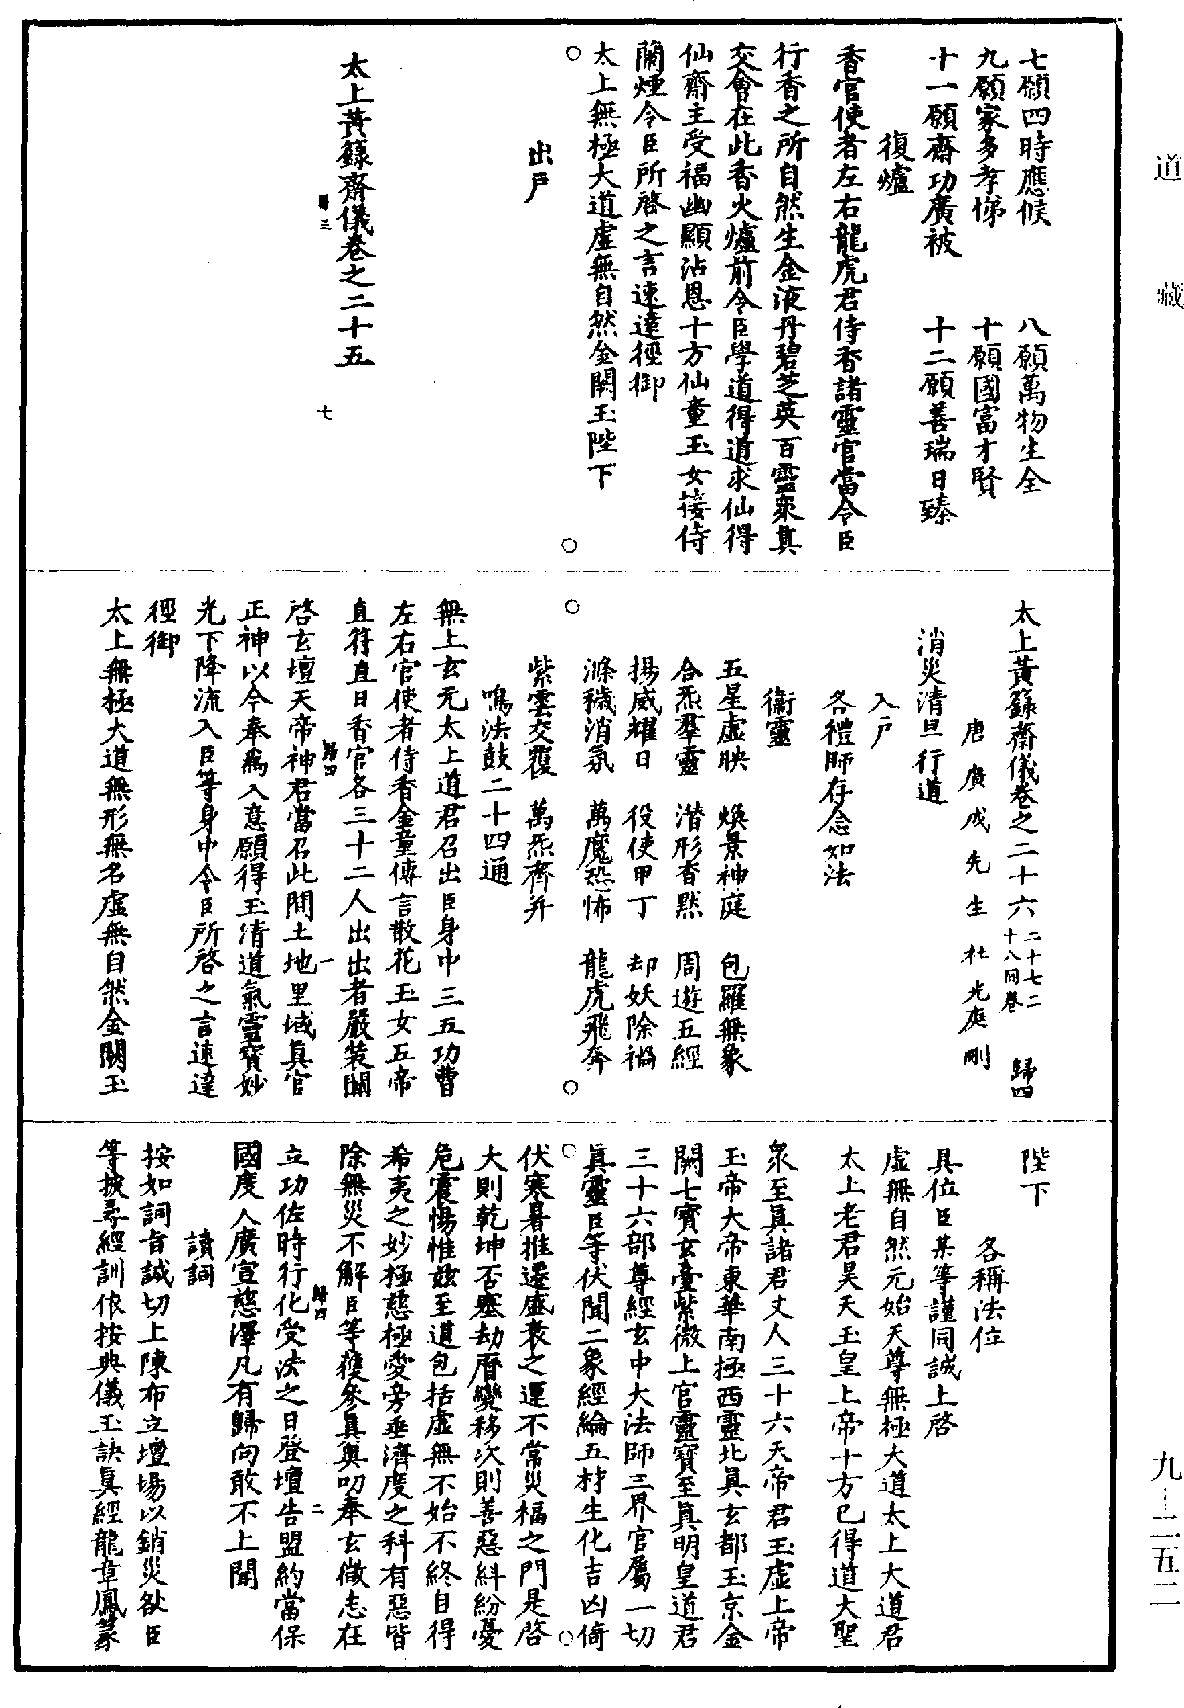 道藏
七願四時應候　八願萬物生全
九願家多孝悌　十願國富才賢
十一願齋功廣被　十二願善瑞日臻
復爐
香官使者左右龍虎君侍香諸靈官當令臣
行香之所自然生金液丹碧芝英百靈衆真
交會在此香火爐前令臣學道得道求仙得
仙齋主受福幽顯沾恩十方仙童玉女接侍
蘭煙令臣所啓之言速達徑御
太上無極大道虛無自然金闕玉陛下
出戶
太上黃籙齋儀卷之二十五
歸三
七
太上黃籙齋儀卷之二十六 二十七二十八同卷 歸四
唐廣成先生杜光庭刪
消災清旦行道
入戶
各禮師存念如法
衞靈
五星虛映　煥景神庭　包羅無象
合炁羣靈　潛形杳默　周遊五經
揚威耀日　役使甲丁　却妖除禍
滌穢消氛　萬魔恐怖　龍虎飛奔
紫雲交覆　萬炁齊并
鳴法鼓二十四通
無上玄元太上道君召出臣身中三五功曹
左右官使者侍香金童傳言散花玉女五帝
直符直日香官各三十二人出出者嚴裝關
歸四
一
啓玄壇天帝神君當召此間土地里域真官
正神以今奉爲入意願得玉清道氣靈寶妙
光下降流入臣等身中令臣所啓之言速達
徑御
太上無極大道無形無名虛無自然金闕玉
陛下
各稱法位
具位臣某等謹同誠上啓
虛無自然元始天尊無極大道太上大道君
太上老君昊天玉皇上帝十方已得道大聖
衆至真諸君丈人三十六天帝君玉虛上帝
玉帝大帝東華南極西靈北真玄都玉京金
闕七寶玄臺紫微上宮靈寶至真明皇道君
三十六部尊經玄中大法師三界官屬一切
真靈臣等伏聞二象經綸五材生化吉凶倚
伏寒暑推遷盛衰之運不常災福之門是啓
大則乾坤否塞劫曆變移次則善惡糾紛憂
危震惕惟兹至道包括虛無不始不終自得
希夷之妙極慈極愛旁垂濟度之科有惡皆
除無災不解臣等獲參真奥叨奉玄微志在
歸四
二
立功佐時行化受法之日登壇告盟約當保
國度人廣宣慈澤凡有歸向敢不上聞
讀詞
按如詞旨誠切上陳布立壇場以銷災咎臣
等披尋經訓依按典儀玉訣真經龍章鳳篆
九-二五二